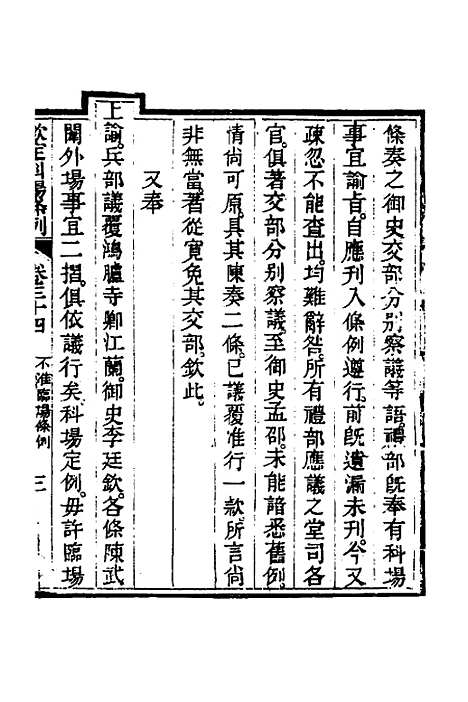 條奏之御史交部分別察議等語。禮部既奉有科場
事宜諭旨。自應刊入條例遵行。前既遺漏未刊。今又
疎忽不能查出。均難辭咎。所有禮部應議之堂司各
官。俱著交部分別察議。至御史孟邵。未能諳悉舊例。
情尚可原。具其陳奏二條。已議覆准行一款。所言尚
非無當。著從寬免其交部。欽此。
又奉
上諭。兵部議覆鴻臚寺卿江蘭。御史李廷欽。各條陳武
闈外場事宜二摺。俱依議行矣。科場定例。毋許臨場
欽定科場條例 卷三十四 不准臨場條例 三